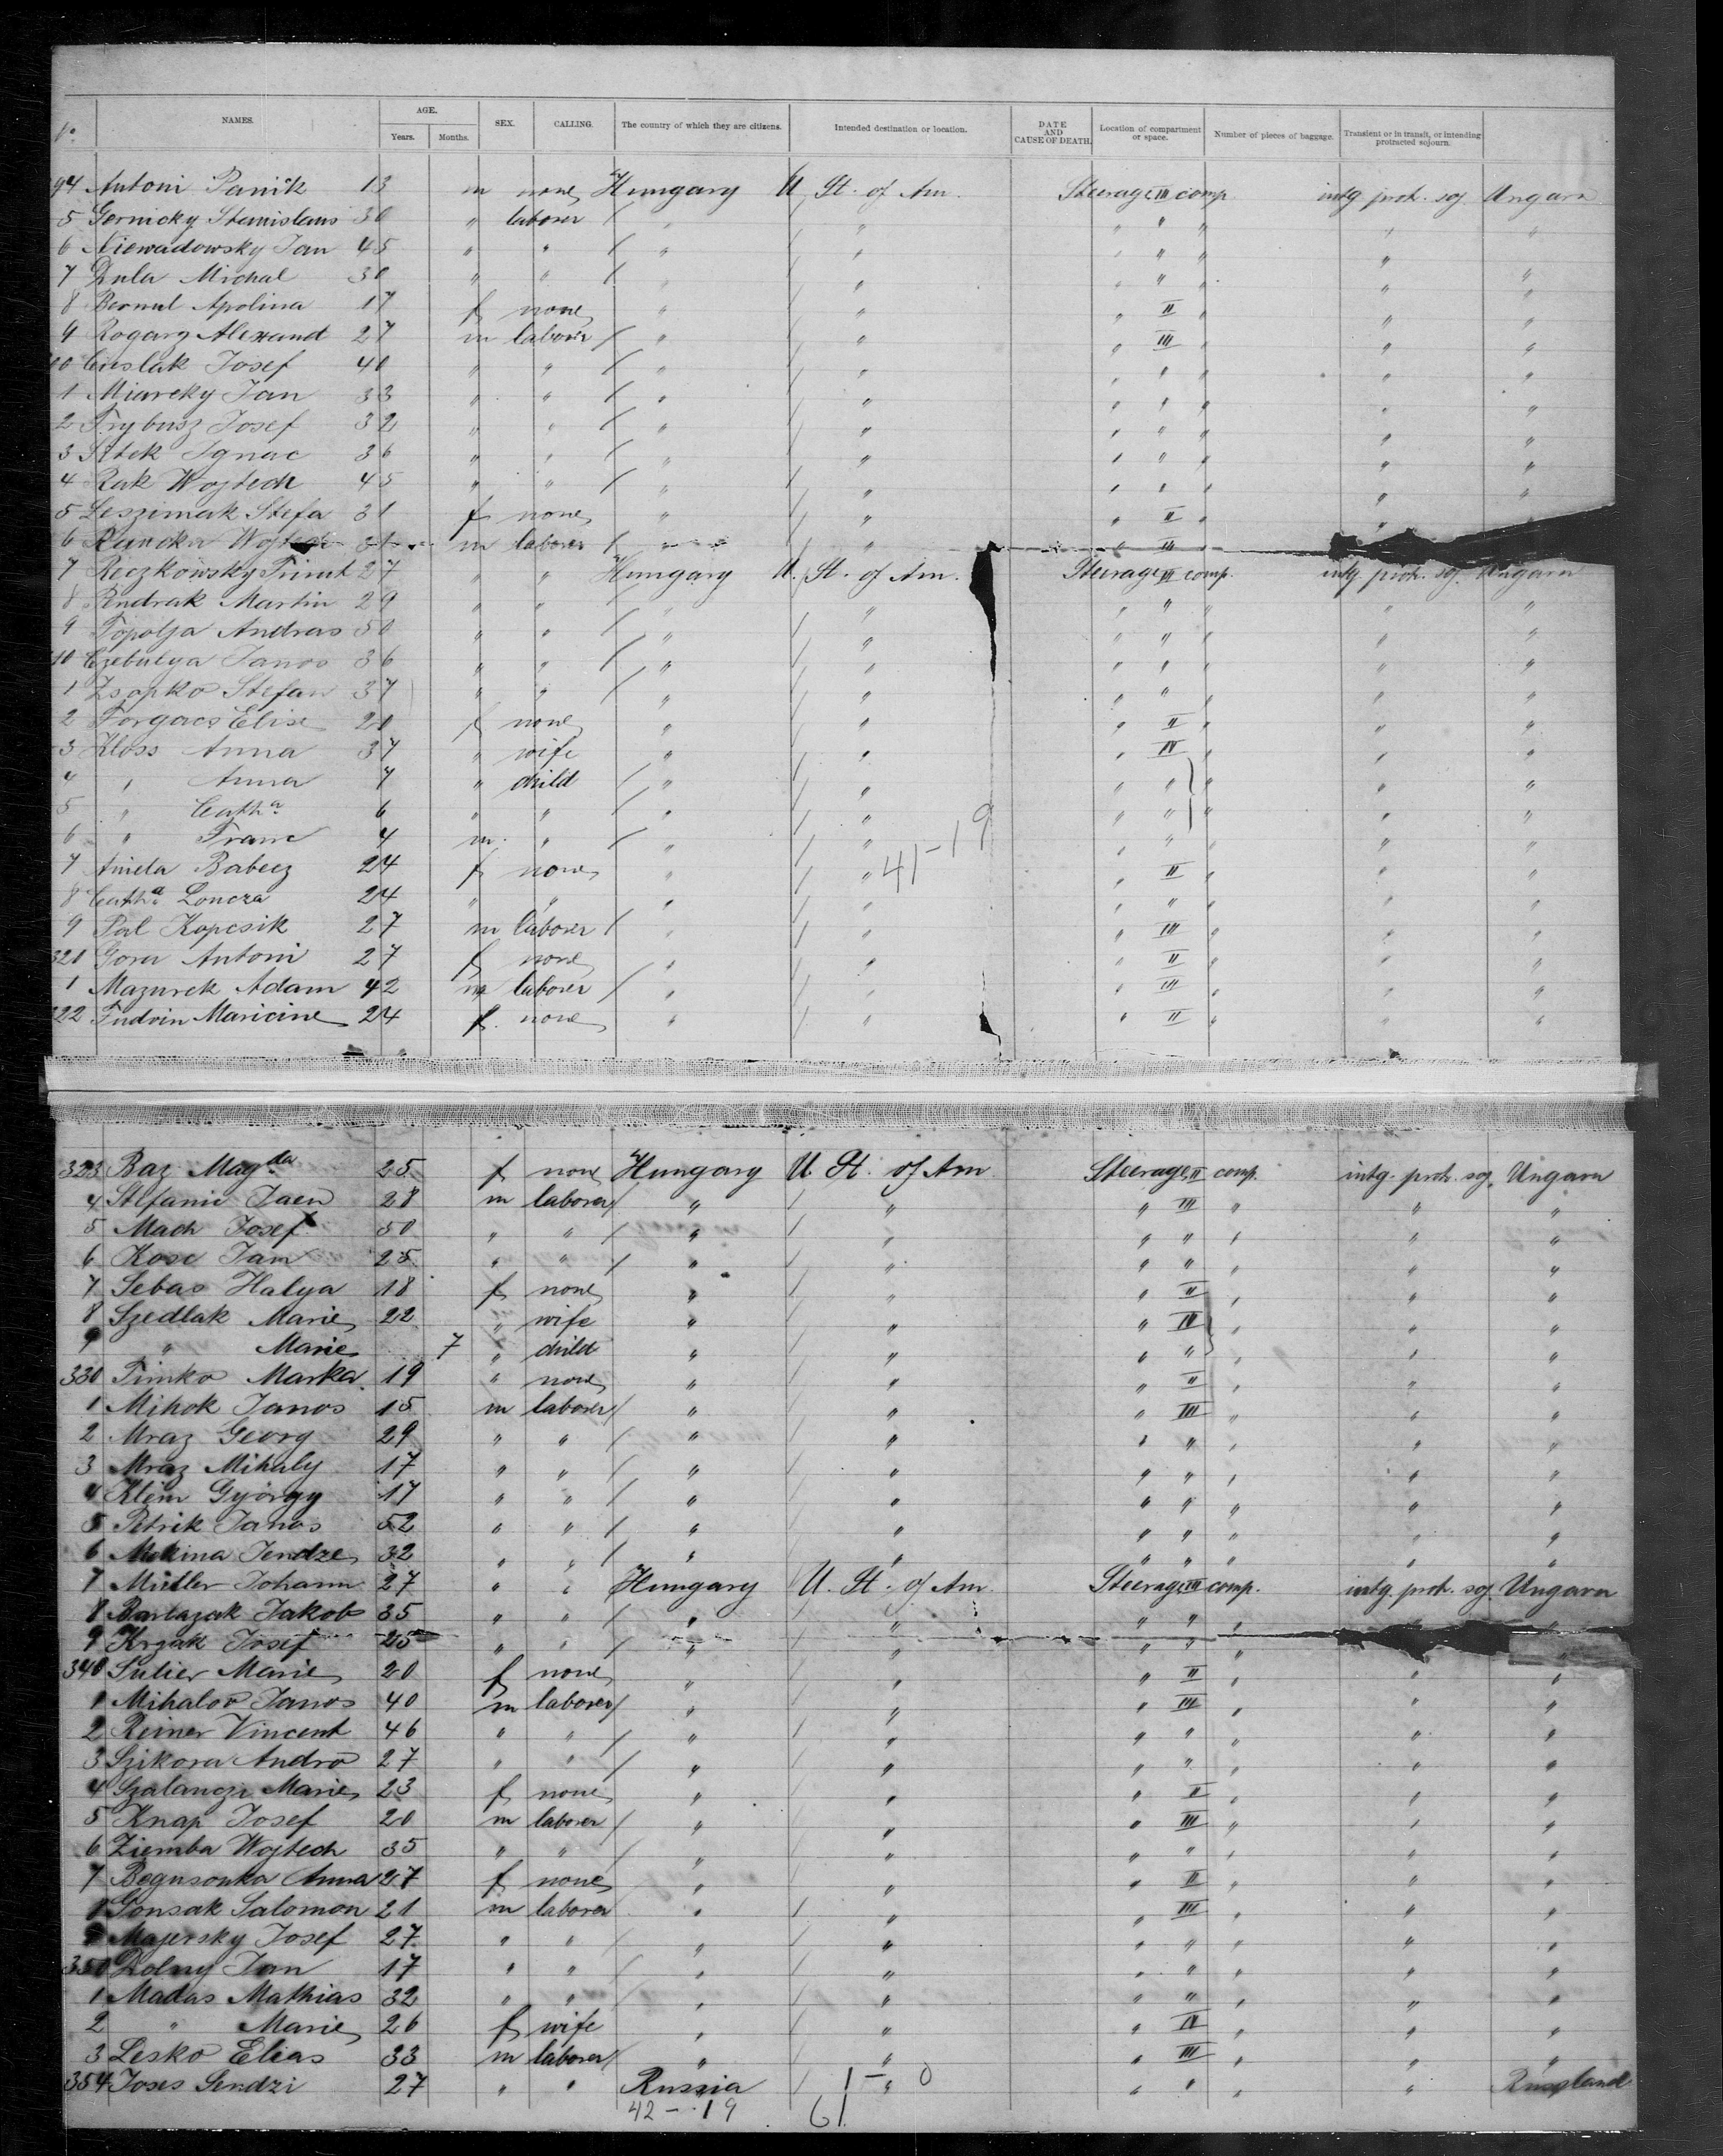 No. NAMES. AGE. Years. Months. SEX. CALLING. The country of which they are citizens. Intended destination or location. DATE AND CAUSE OF DEATH. Location of compartment or space. Number of pieces of baggage. Transient or in transit, or intending protracted sojourn.
94 Antoni Panik 13 m none Hungary U. St. of Am. Steerage III comp intg. proh. soj. Ungarn
5 Gornicky Stanislaus 30 " laborer / " / " " " " " "
6 Niewadowsky Jan 45 " " / " / " " " " " "
7 Dula Michal 30 " " / " / " " " " " "
8 Apolina 17 f none " / " " II " " "
9 Rogarz Alexand 27 m laborer / " / " " III " " "
00 Cieslak Josef 40 " " / " / " " " " " "
1 Miarcky Jan 33 " " / " / " " " " " "
2 Trybusz Josef 32 " " / " / " " " " " "
3 Sitek Ignac 36 " " / " / " " " " " "
4 Rak Wojtech 45 " " / " / " " " " " "
5 Leszimak Stefa 31 f none " / " " II " " "
6 31 m laborer / " / " " III "
7 Reczkowsky 27 " " Hungary U. St. of Am. Steerage III comp. intg. proh. soj. Ungarn
8 Andrak Martin 29 " " / " / " " " " " "
9 Topolja Andras 50 " " / " / " " " " " "
10 Czebulya Janos 36 " " / " / " " " " " "
1 Zsopko Stefan 37 " " / " / " " " " " "
2 Forgacs Elise 20 f none " / " " II " " "
3 Kloss Anna 37 " wife " / " " IV " " "
4 " Anna 7 " child / " / " " " " " "
5 " Catha 6 " " / " / " " " " " "
6 " Franc 4 m " / " / " " " " " "
41-19
7 Aniela Babecz 24 f none " / " " II " " "
8 Catha Loncza 24 " " " / " " " " " "
9 Pal Kopcsik 27 m laborer / " / " " III " " "
320 Gora Antoni 27 f none " / " " II " " "
1 Mazurek Adam 42 m laborer / " / " " III " " "
322 Maricine 24 f. none " / " " II " " "
323 Baz Magda 25 f none Hungary U St. of Am Steerage II comp. intg. proh. soj. Ungarn
4 Stefanic Jaen 28 m laborer / " / " " III " " "
5 Mach Josef 50 " " / " / " " " " " "
6 Kosc Jan 25 " " / " / " " " " " "
7 Sebas Halya 18 f none " / " " II " " "
8 Szedlak Marie 22 " wife " / " " IV " " "
9 " Marie 7 " child " / " " " " " "
330 Timko Marka 19 " none " / " " II " " "
1 Mihok Janos 15 m laborer / " / " " III " " "
2 Mraz Georg 29 " " / " / " " " " " "
3 Mraz Mihaly 17 " " / " / " " " " " "
4 Klein György 17 " " / " / " " " " " "
5 Petrik Janos 52 " " / " / " " " " " "
6 Mokina Jendze 32 " " / " / " " " " " "
7 Müller Johann 27 " " Hungary U. St. of Am Steerage III comp. intg. proh. soj. Ungarn
8 Jakob 35 " " / " / " " " " " "
9 Krzak Josef 25 " " / " / " " " "
340 Sulier Marie 20 f none " / " " II " " "
1 Mihalov Janos 40 m laborer / " / " " III " " "
2 Reiner Vincent 46 " " / " / " " " " " "
3 Szikora Andro 27 " " / " / " " " " " "
4 Szalanczi Marie 23 f none " / " " II " " "
5 Knap Josef 20 m laborer / " / " " III " " "
6 Ziemba Wojtech 35 " " / " / " " " " " "
7 Bogusonka Anna 27 f none " / " " II " " "
8 Gonsak Salomon 21 m laborer " / " " III " " "
9 Majersky Josef 27 " " / " / " " " " " "
350 Dolny Jan 17 " " / " / " " " " " "
1 Madas Mathias 32 " " / " / " " " " " "
2 " Marie 26 f wife " / " " IV " " "
3 Lesko Elias 33 m laborer / " / " " III " " "
354 Joses Sendzi 27 " " Russia / 1 - 0 " " " " " Russland
42 - 19 61